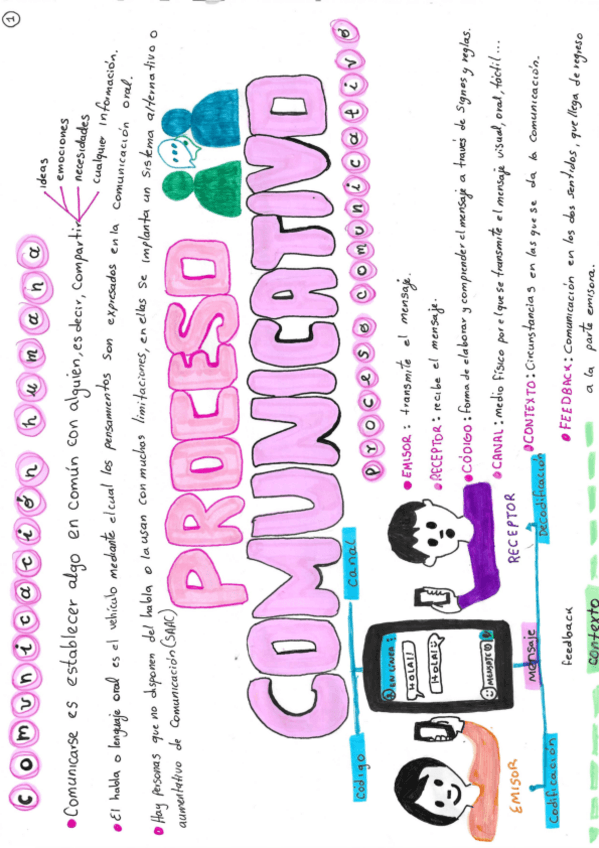 1
comunicación humana
• Comunicarse es establecer algo en común con alguien, es decir, compartir
ideas
emociones
necesidades
cualquier información.
• El habla o lenguaje oral es el vehículo mediante el cual los pensamientos son expresados en la comunicación oral.
• Hay personas que no disponen del habla o la usan con muchas limitaciones, en ellas se implanta un sistema alternativo o
aumentativo de comunicación (SAAC)
PROCESO
COMUNICATIVO
Proceso comunicativo
• EMISOR: transmite el mensaje.
• RECEPTOR: recibe el mensaje.
• CÓDIGO: forma de elaborar y comprender el mensaje a través de signos y reglas.
• CANAL: medio físico por el que se transmite el mensaje visual, oral, táctil...
• CONTEXTO: Circunstancias en las que se da la comunicación.
• FEEDBACK: Comunicación en los dos sentidos, que llega de regreso
a la parte emisora.
Codigo
Canal
EN LÍNEA
HOLA!!
HOLA!
MENSAJE
EMISOR
RECEPTOR
Codificación
Mensaje
Decodificación
feedback
contexto